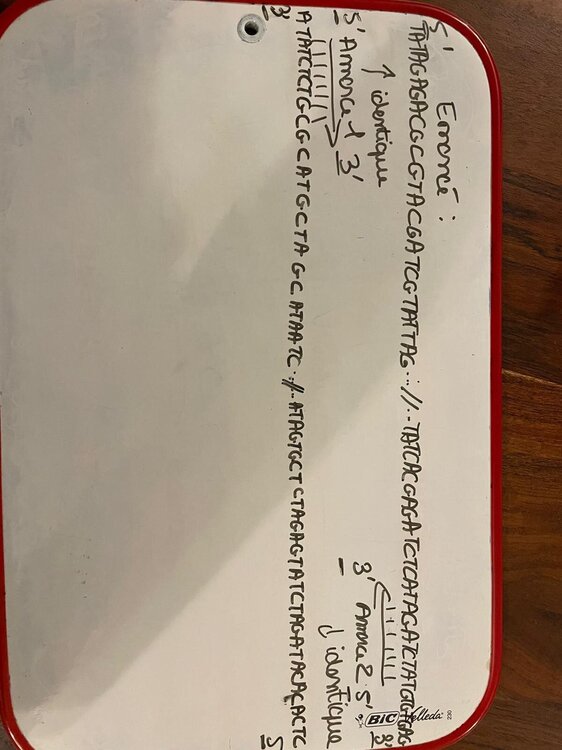 Enoncé :
5' TATAGAGACGCGTACGATCGTATTAG...//...TATCACGAGATCTCATAGATCTATGTGTGAG 3'
↑ identique
3' Amorce 2 5'
5' Amorce 1 3'
↓ identique
3' ATATCTCTGCGCATGCTAGC ATAATC..//..ATAGTGCTCTAGAGTATCTAGATACACACTC 5'
BIC Velleda